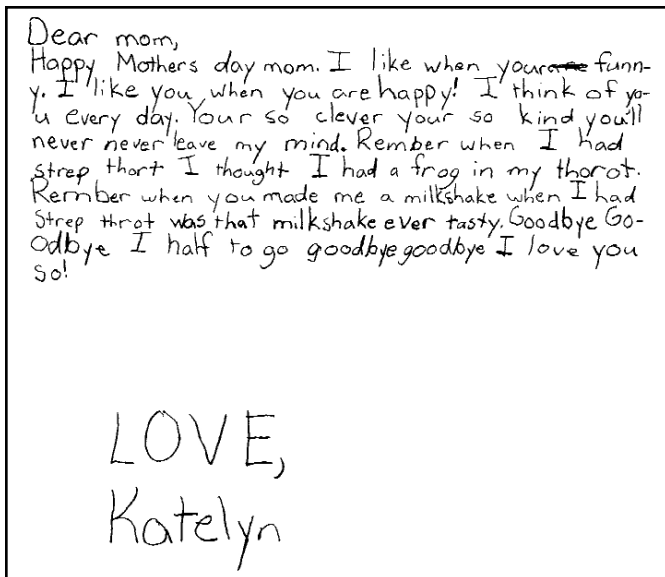 Dear mom,
Happy Mothers day mom. I like when your funn-
y. I like you when you are happy! I think of yo-
u every day. Your so clever your so kind you'll
never never leave my mind. Rember when I had
strep thort I thought I had a frog in my thorot.
Rember when you made me a milkshake when I had
Strep throt was that milkshake ever tasty. Goodbye Go-
odbye I half to go goodbye goodbye I love you
so!
LOVE,
Katelyn